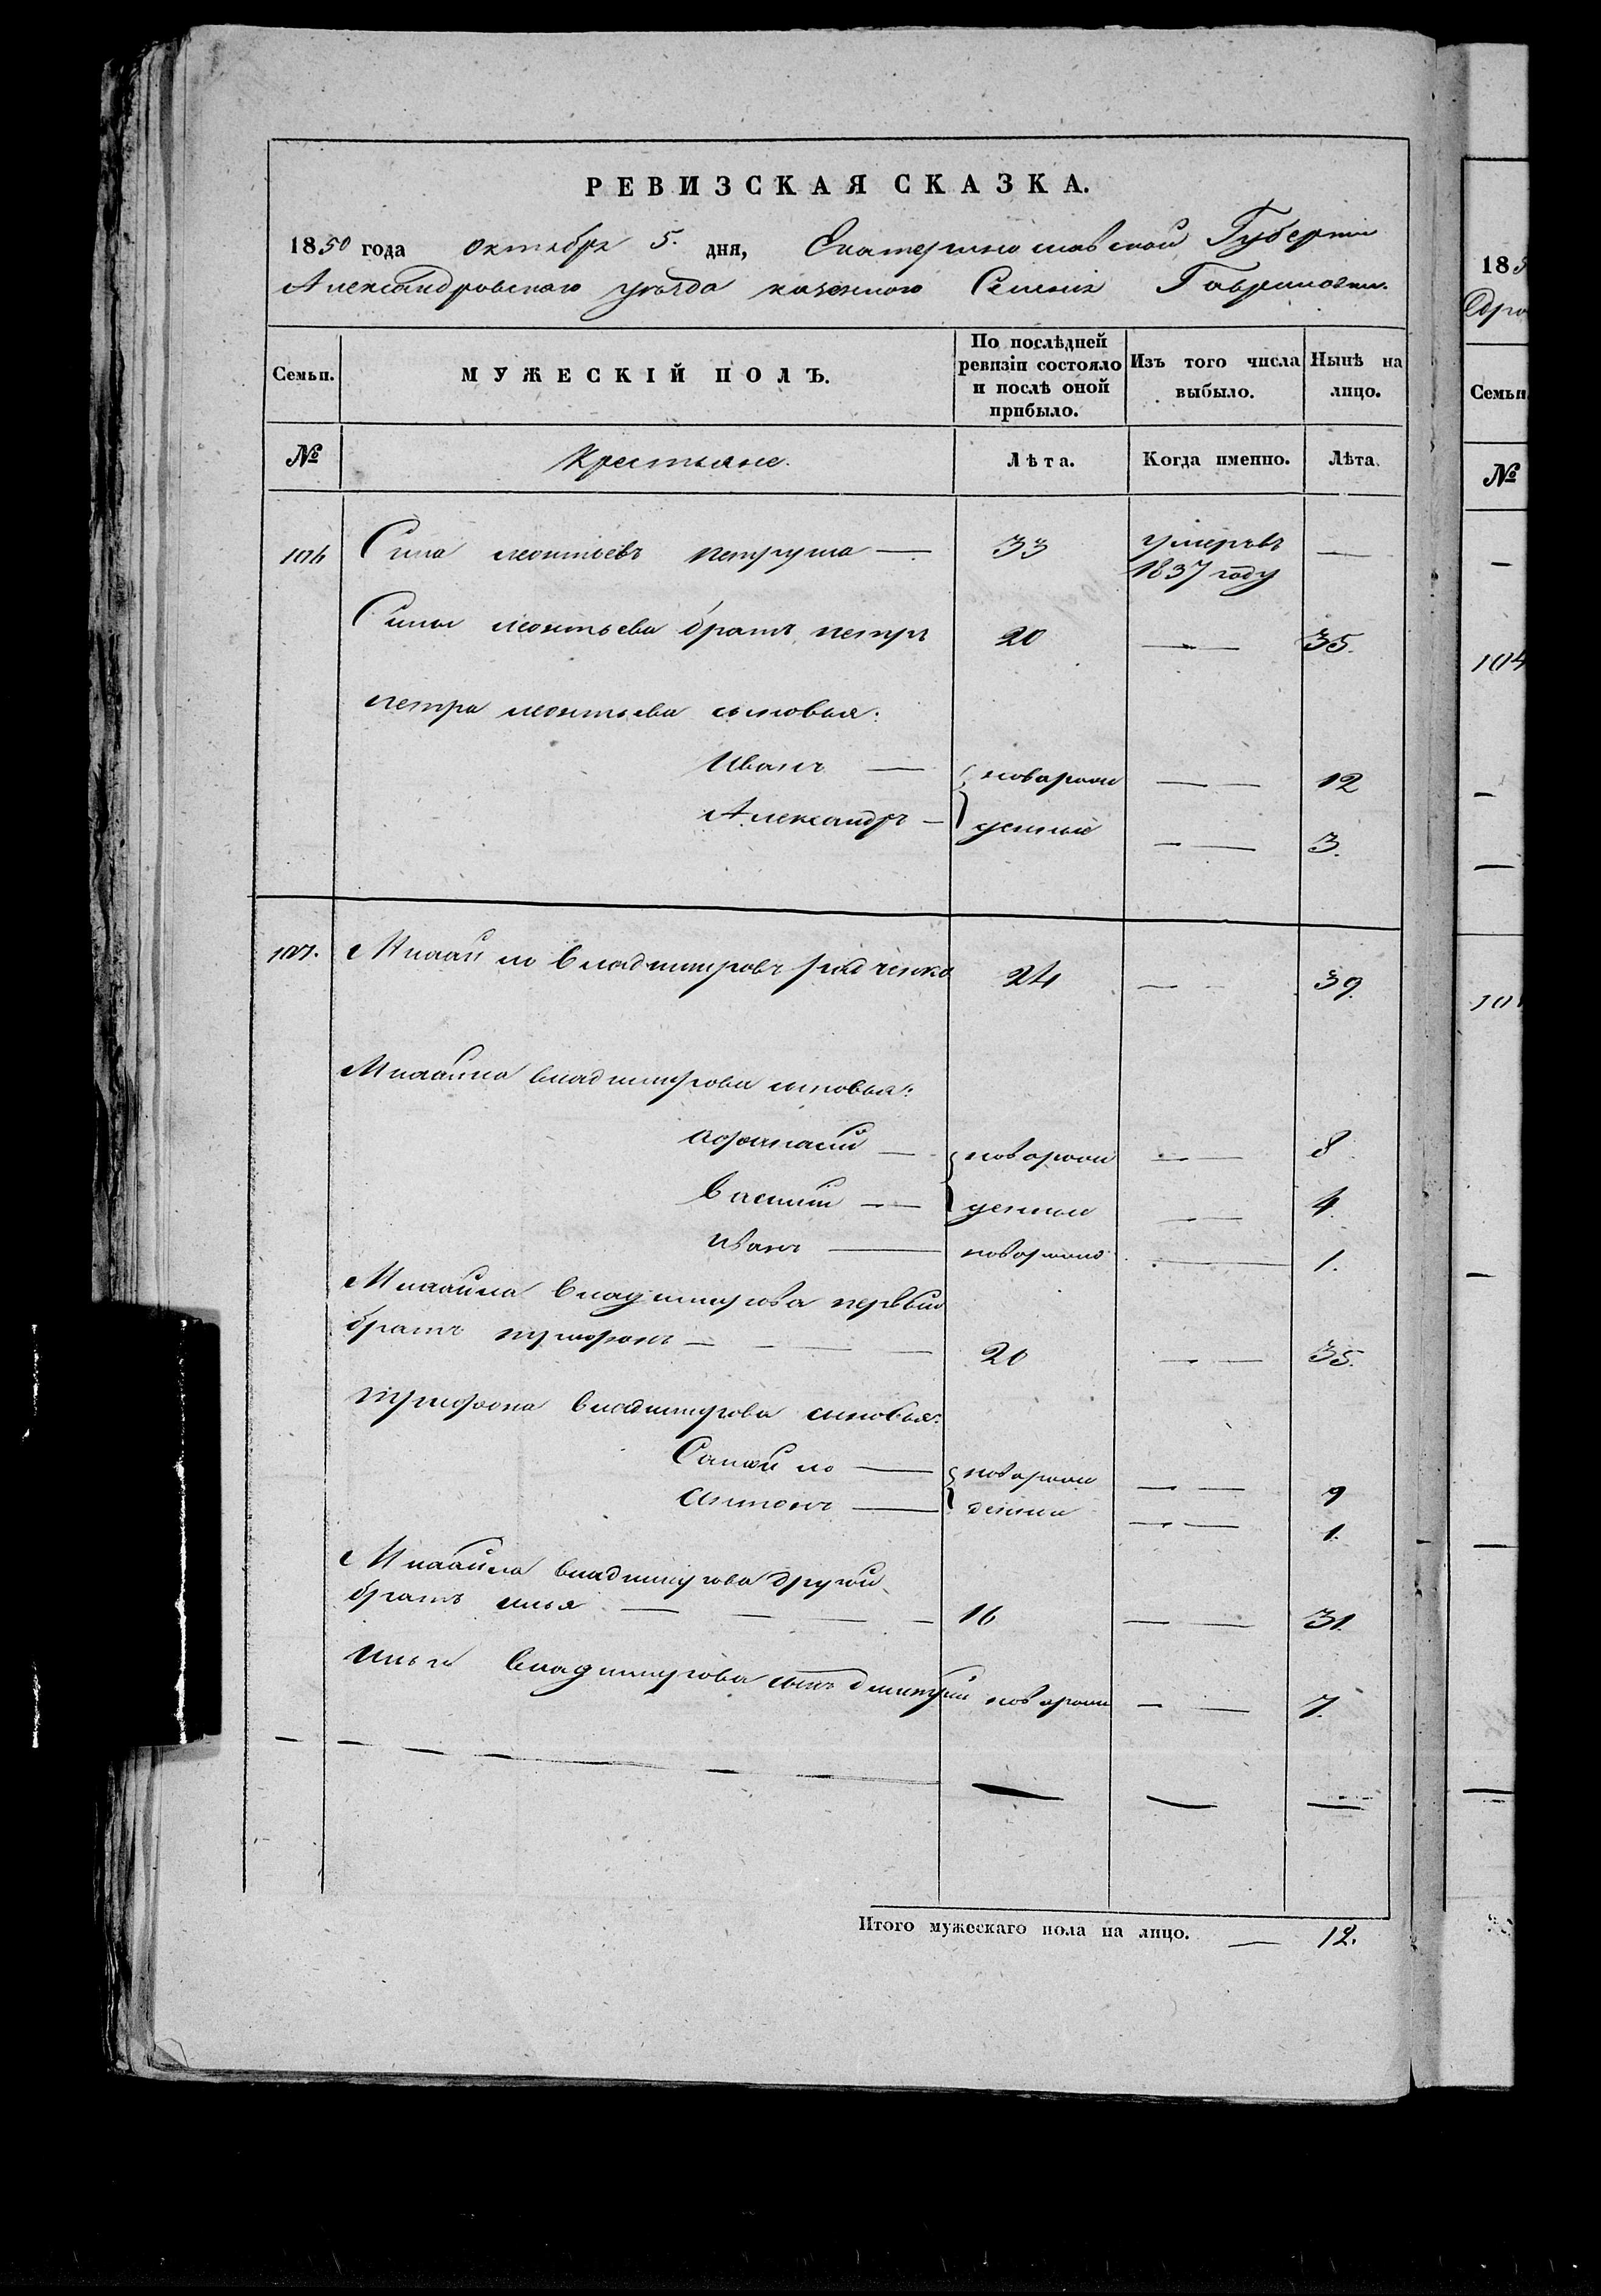 РЕВИЗСКАЯ СКАЗКА.
1850 года октября 5. дня, Екатеринославской Губернии
Александровскаго уѣзда казенного Селенія Гавриловки.
Семьи. МУЖЕСКІЙ ПОЛЪ. По послѣдней ревизіи состояло и послѣ оной прибыло. Изъ того числа выбыло. Нынѣ на лицо.
№ Крестьяне. Лѣта. Когда именно. Лѣта.
104 Сила леонтьевъ петруша — 33 умеръ въ 1837 году —
Силы леонтьева братъ петръ 20 — 35.
петра леонтьева сыновья:
Иванъ — новорож — 12
Александръ — денные — 3.
Михайло владимировъ радченко 24 — 39.
Михайла владимирова сыновья:
Афанасий — новорож — 8
Василий — денные — 4.
Иванъ — новорожд — 1.
Михайла владимирова первый
братъ трифонъ — 20 — 35.
трифона владимирова сыновья:
Самойло — новорож — 9
Антонъ — денные — 1.
Михайла владимирова другой
братъ илья — 16 — 31.
Ильи владимирова сынъ дмитрий новорож — 7.
Итого мужескаго пола на лицо. — 12.
185
Семьи
№
104